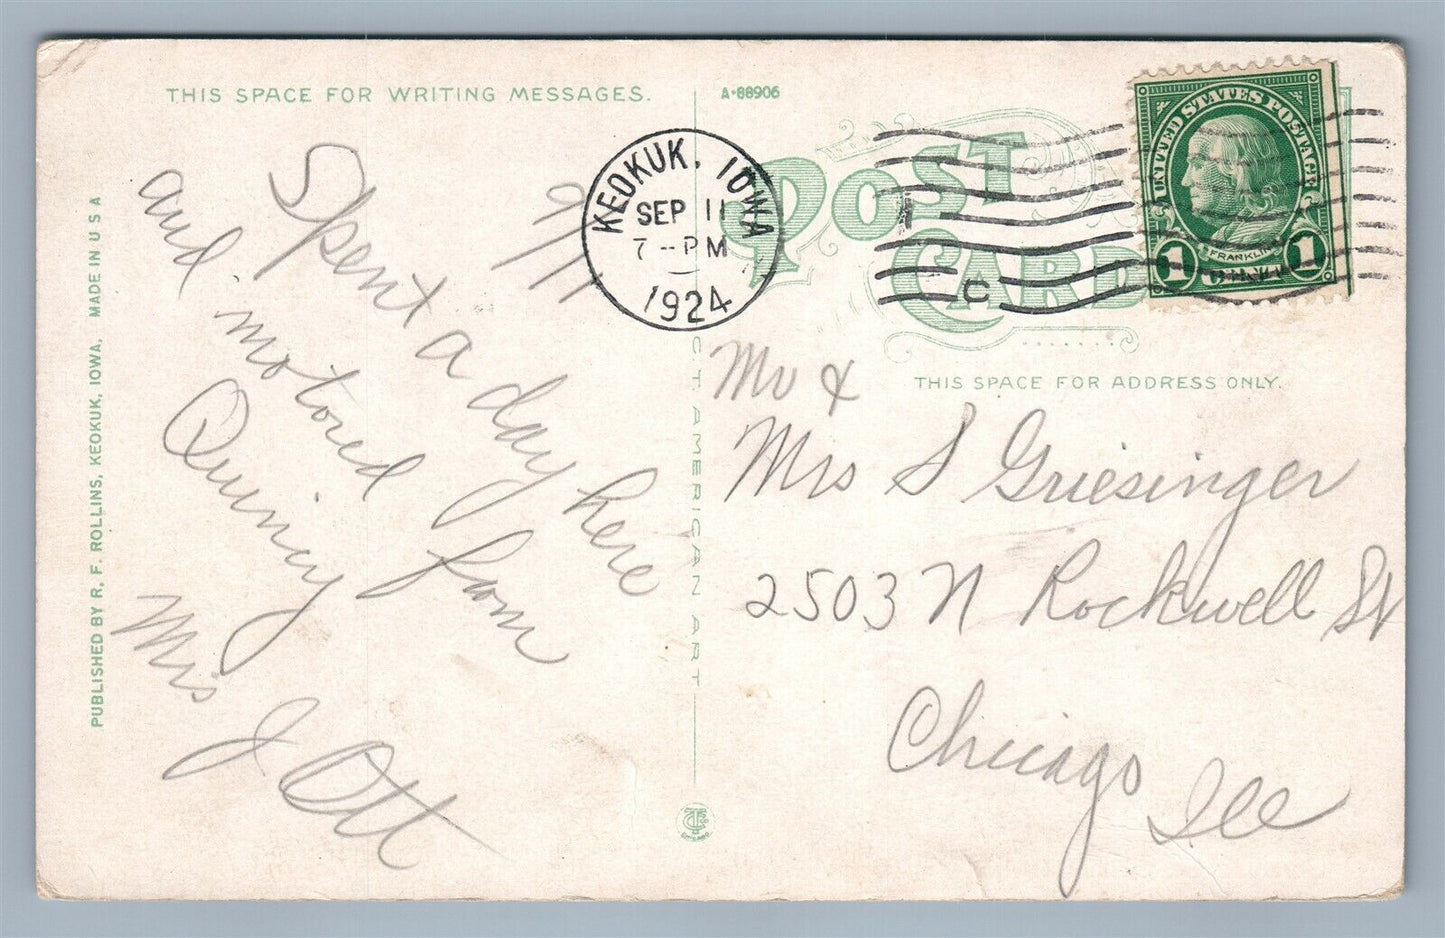 THIS SPACE FOR WRITING MESSAGES.
A-88906
POST
CARD
KEOKUK, IOWA
SEP 11
7--PM
1924
C
UNITED STATES POSTAGE
FRANKLIN
1 CENT 1
THIS SPACE FOR ADDRESS ONLY.
9/11
Spent a day here
and motored from
Quincy
Mrs J Ott
Mr &
Mrs S Griesinger
2503 N Rockwell St
Chicago
Ill
PUBLISHED BY R. F. ROLLINS, KEOKUK, IOWA. MADE IN U S A
CT AMERICAN ART